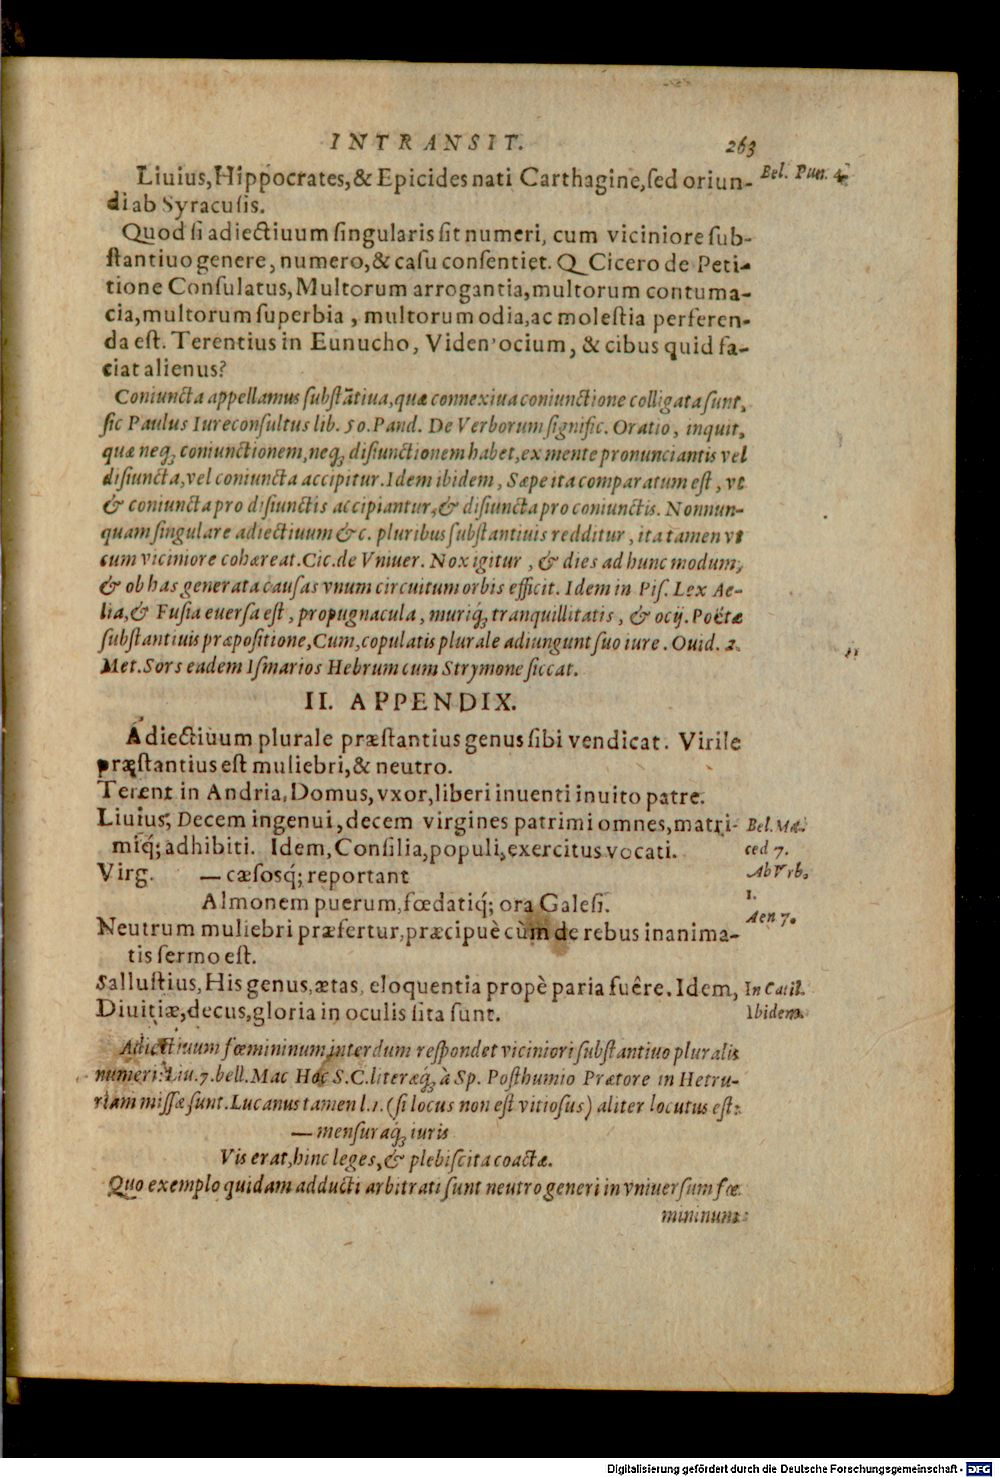 INTRANSIT. 263
Liuius, Hippocrates, & Epicides nati Carthagine, sed oriun- Bel. Pun. 4.
di ab Syracusis.
Quod si adiectiuum singularis sit numeri, cum viciniore sub-
stantiuo genere, numero, & casu consentiet. Q Cicero de Peti-
tione Consulatus, Multorum arrogantia, multorum contuma-
cia, multorum superbia, multorum odia, ac molestia perferen-
da est. Terentius in Eunucho, Viden' ocium, & cibus quid fa-
ciat alienus?
Coniuncta appellamus substãtiua, quæ connexiua coniunctione colligata sunt,
sic Paulus Iureconsultus lib. 50. Pand. De Verborum signific. Oratio, inquit,
quæ neqꝫ coniunctionem, neqꝫ disiunctionem habet, ex mente pronunciantis vel
disiuncta, vel coniuncta accipitur. Idem ibidem, Sæpe ita comparatum est, vt
& coniuncta pro disiunctis accipiantur, & disiuncta pro coniunctis. Nonnun-
quam singulare adiectiuum &c. pluribus substantiuis redditur, ita tamen vt
cum viciniore cohæreat. Cic. de Vniuer. Nox igitur, & dies ad hunc modum,
& ob has generata causas vnum circuitum orbis efficit. Idem in Pis. Lex Ae-
lia, & Fusia euersa est, propugnacula, muriq́ꝫ tranquillitatis, & ocij. Poëtæ
substantiuis præpositione, Cum, copulatis plurale adiungunt suo iure. Ouid. 2.
Met. Sors eadem Ismarios Hebrum cum Strymone siccat.
II. APPENDIX.
Adiectiuum plurale præstantius genus sibi vendicat. Virile
præstantius est muliebri, & neutro.
Terent in Andria, Domus, vxor, liberi inuenti inuito patre.
Liuius, Decem ingenui, decem virgines patrimi omnes, matri- Bel. Ma.
miq́; adhibiti. Idem, Consilia, populi, exercitus vocati. ced 7.
Virg. — cæsosq́; reportant Ab Vrb.
1.
Almonem puerum, fœdatiq́; ora Galesi.
Aen 7.
Neutrum muliebri præfertur, præcipuè cùm de rebus inanima-
tis sermo est.
Sallustius, His genus, ætas, eloquentia propè paria fuêre. Idem, In Catil.
Diuitiæ, decus, gloria in oculis sita sunt. Ibidem.
Adiectiuum fœmininum interdum respondet viciniori substantiuo pluralis
numeri: Liu. 7. bell. Mac Hoc S.C. literæq́ꝫ à Sp. Posthumio Prætore in Hetru-
riam missæ sunt. Lucanus tamen l.1. (si locus non est vitiosus) aliter locutus est:
— mensuraq́ꝫ iuris
Vis erat, hinc leges, & plebiscita coactæ.
Quo exemplo quidam adducti arbitrati sunt neutro generi in vniuersum fœ
mininum
Digitalisierung gefördert durch die Deutsche Forschungsgemeinschaft - DFG